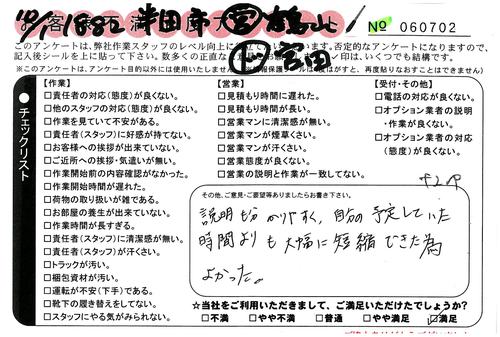 10/1 1882 半田市 営 鶴山
№ 060702
このアンケートは、弊社作業スタッフのレベル向上に
否定的なアンケートになりますので、
記入後シールを上に貼って下さい。数多くの正直な
印は、いくつでも結構です。
(※このアンケートは、アンケート目的以外には使用いたしません
保護シールをはがすと、再度貼りなおすことはできません)
チェックリスト
【作業】
□責任者の対応(態度)が良くない。
□他のスタッフの対応(態度)が良くない。
□作業を見ていて不安がある。
□責任者(スタッフ)に好感が持てない。
□お客様への挨拶が出来ていない。
□ご近所への挨拶・気遣いが無い。
□作業開始前の内容確認がなかった。
□作業開始時間が遅れた。
□荷物の取り扱いが雑である。
□お部屋の養生が出来ていない。
□作業時間が長すぎる。
□責任者(スタッフ)に清潔感が無い。
□責任者(スタッフ)が汗くさい。
□トラックが汚い。
□梱包資材が汚い。
□運転が不安(下手)である。
□靴下の履き替えをしてない。
□スタッフにやる気がみられない。
【営業】
□見積もり時間に遅れた。
□見積もり時間が長い。
□営業マンに清潔感が無い。
□営業マンが煙草くさい。
□営業マンが汗くさい。
□営業態度が良くない。
□営業の説明と作業が一致してない。
【受付・その他】
□電話の対応が良くない。
□オプション業者の説明
・作業が良くない。
□オプション業者の対応
(態度)が良くない。
その他、ご意見・ご要望等ありましたらお書き下さい。
説明も分かりやすく、自分の予定していた
時間よりも大幅に短縮できた為
よかった。
☆当社をご利用いただきまして、ご満足いただけたでしょうか?
□不満 □やや不満 □普通 □やや満足 □満足